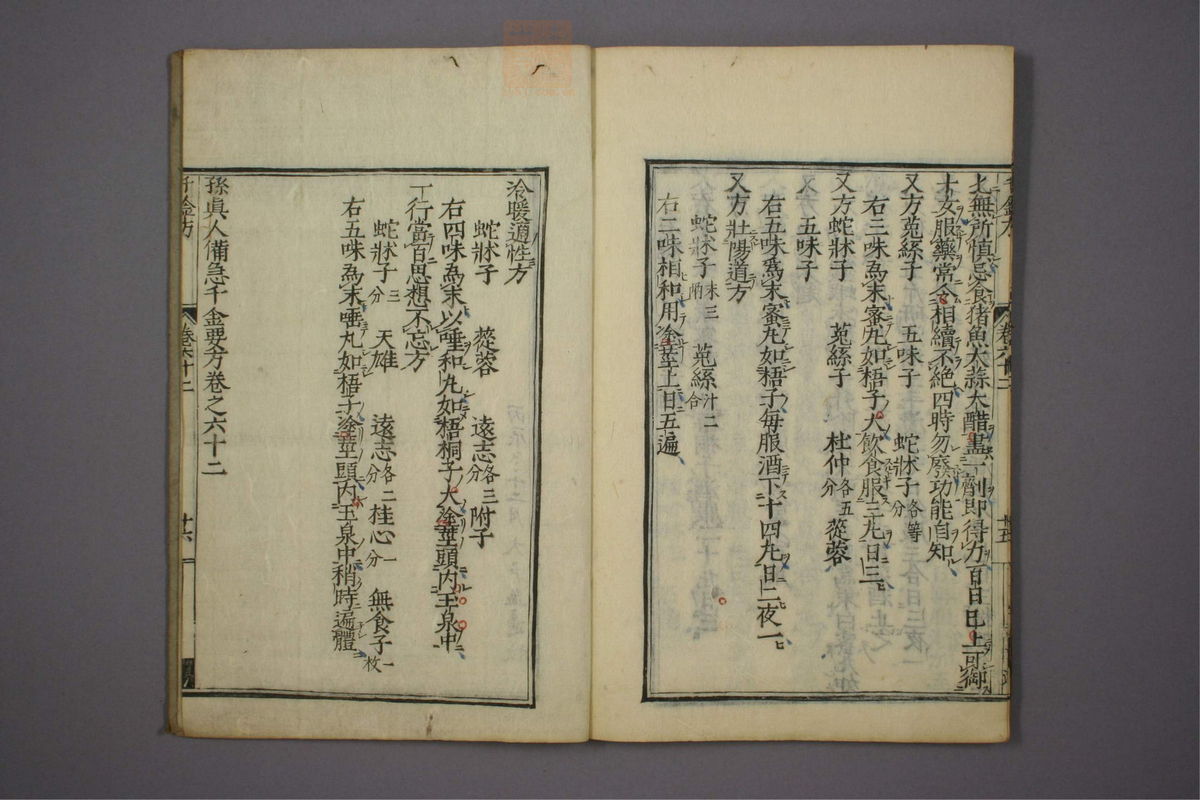 匕無所慎忌食猪魚大蒜大醋盡一劑即得力百日已上可御
十女服藥常令相續不絕四時勿廢功能自知
又方菟絲子 五味子 蛇牀子各等分
右三味為末蜜丸如梧子大飲食服三丸日三
又方蛇牀子 菟絲子 杜仲各五分 蓯蓉
又方 五味子
右五味為末蜜丸如梧子每服酒下十四丸日二夜一
又方壯陽道方
蛇牀子末三 菟絲汁二合
右二味相和用塗莖上日五遍
千金方 卷六十二 廿五
冷暖適性方
蛇牀子 蓯蓉 遠志各三分 附子
右四味為末以唾和丸如梧桐子大塗莖頭內玉泉中
行當百思想不忘方
蛇牀子三分 天雄 遠志各二分 桂心一分 無食子一枚
右五味為末唾丸如梧子塗莖頭內玉泉中稍時遍體
孫真人備急千金要方卷之六十二
千金方 卷六十二 廿六